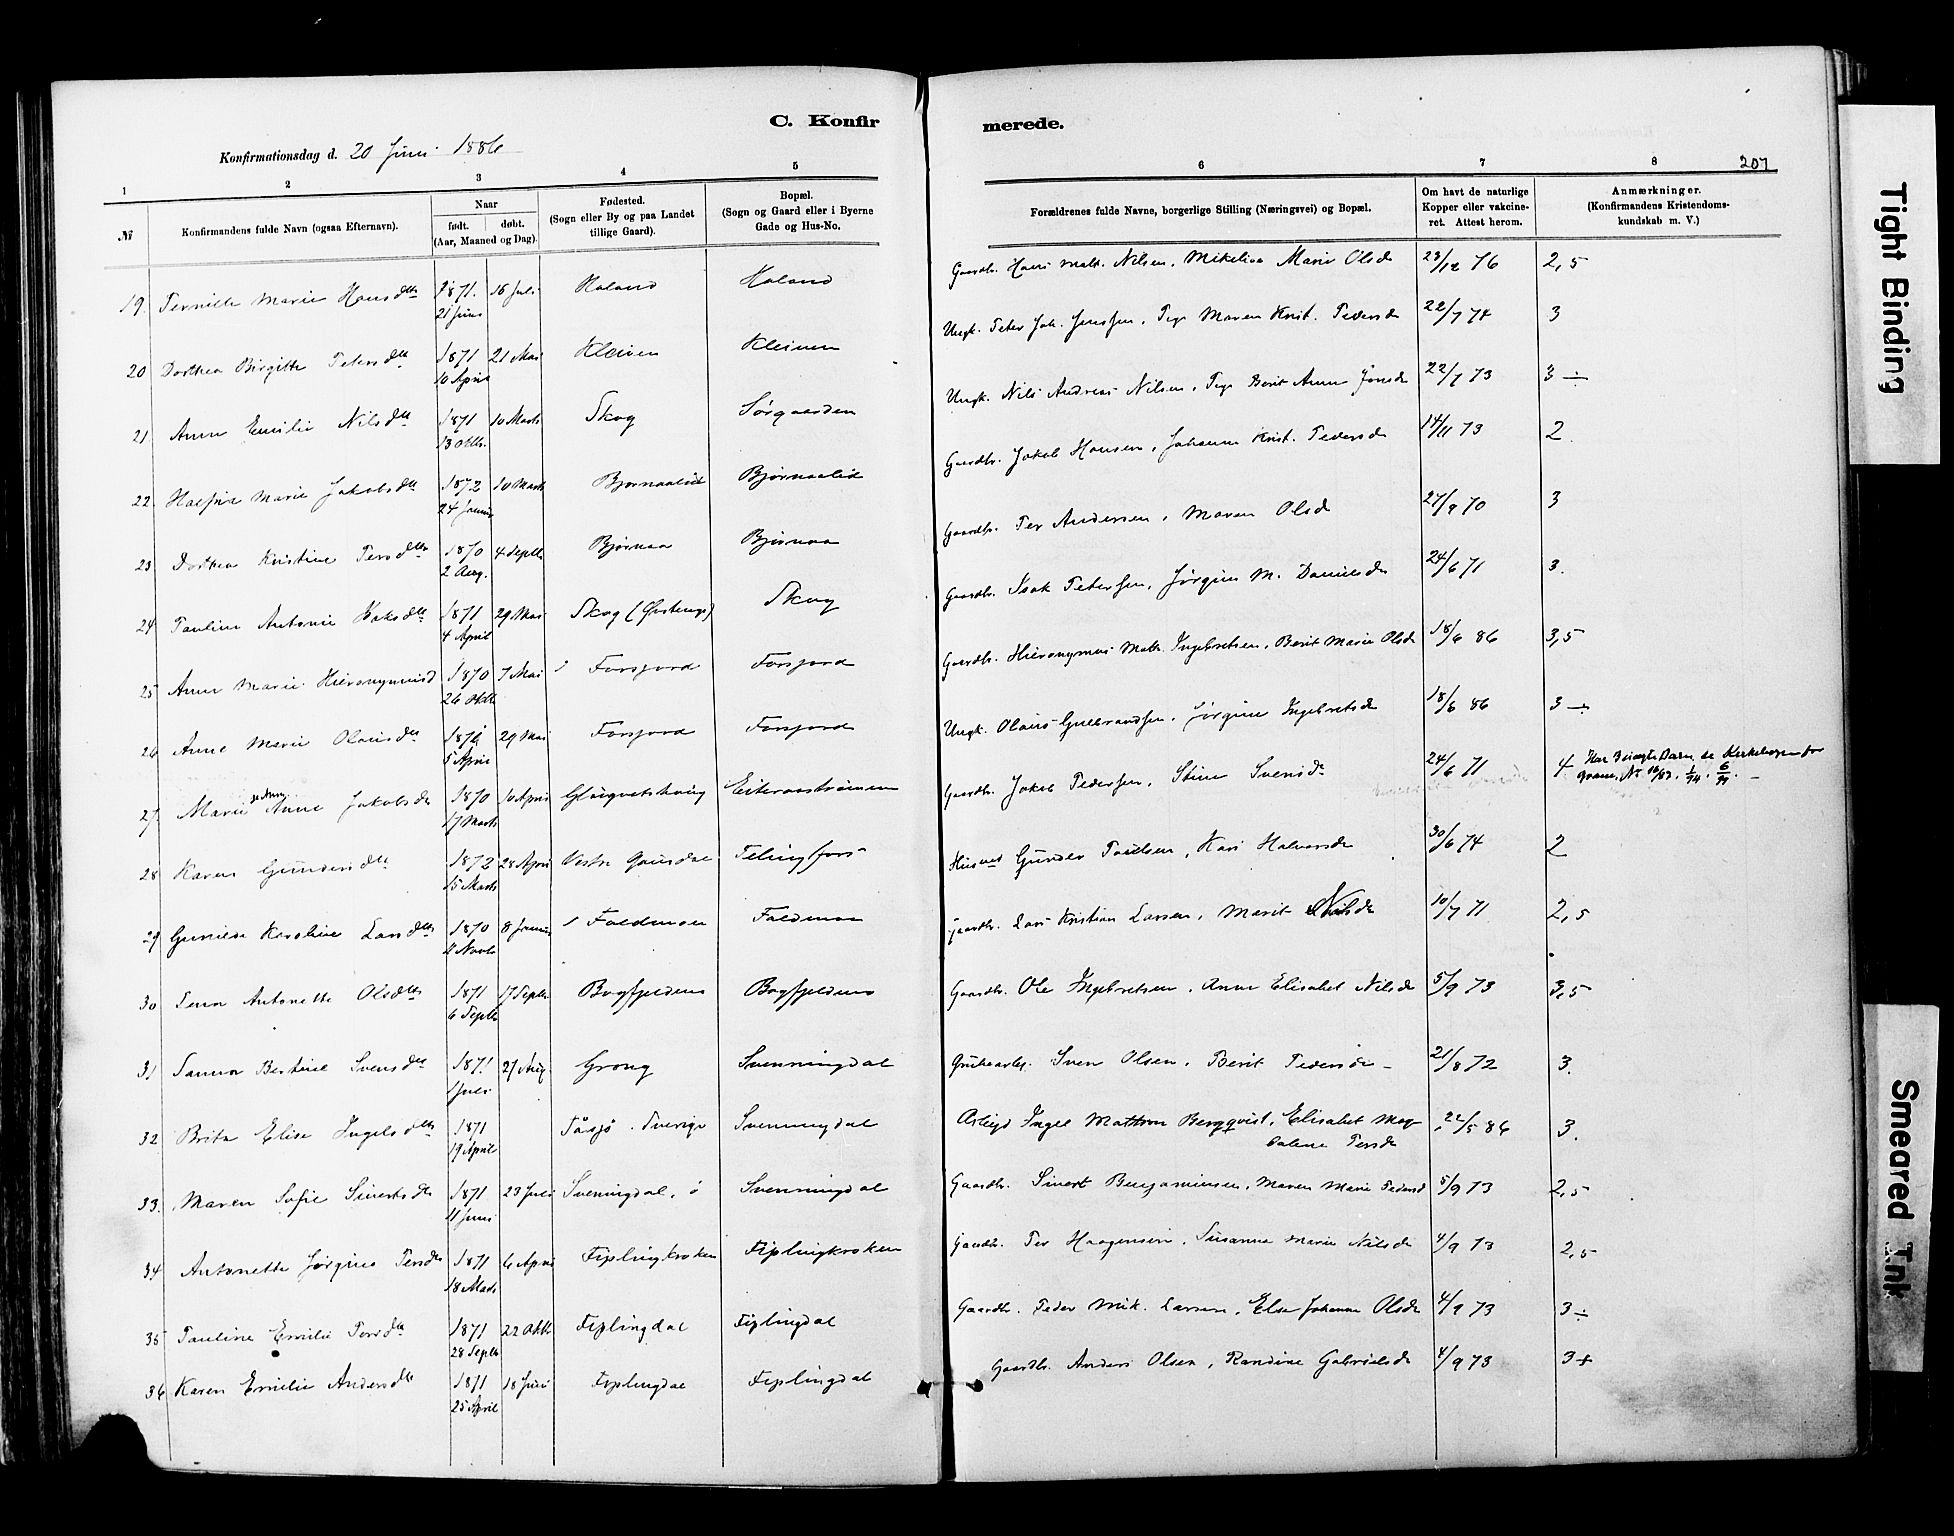 C. Konfir
merede.
Konfirmationsdag d. 20 Juni 1886
207
1 2 3 4 5 6 7 8
№
Konfirmandens fulde Navn (ogsaa Efternavn).
Naar
født. døbt.
(Aar, Maaned og Dag).
Fødested.
(Sogn eller By og paa Landet
tillige Gaard).
Bopæl.
(Sogn og Gaard eller i Byerne
Gade og Hus-No.
Forældrenes fulde Navne, borgerlige Stilling (Næringsvei) og Bopæl.
Om havt de naturlige
Kopper eller vakcine-
ret. Attest herom.
Anmærkninger.
(Konfirmandens Kristendoms-
kundskab m. V.)
19. Pernille Marie Hansdtr 1871. 16 Juli Haland Haland Gaardbr. Hans Math. Nilsen, Mikelina Marie Olsd 23/12 76 2,5
21 Juni
20 Dorthea Birgitte Petersdtr 1871 21 Mai Kleiven Kleiven Ungk. Peter Joh. Jensen, Pige Maren Krist. Pedersd 22/7 74 3
10 April
21 Anne Emilie Nilsdtr 1871 10 Marts Skog Sørgaarden Ungk. Nils Andreas Nilsen, Pige Berit Anne Jonsd 22/7 73 3 ÷
13 Oktb.
22 Marie Jakobsdtr 1872 10 Marts Bjørnaalid Bjørnaalid Gaardbr. Jakob Hansen, Johanna Krist. Pedersd 14/11 73 2.
24 Januar
23 Dorthea Kristine Persdtr 1870 4 Septb Bjørnaa Bjørnaa Gaardbr. Per Andersen, Maren Olsd 27/9 70 3
2 Aug.
24 Pauline Antonie Isaksdtr 1871 29 Mai Skog Skog Gaardbr. Isak Petersen, Jørgine M. Danielsd 24/6 71 3.
4 April
25 Anne Marie Hieronymusd 1870 7 Mai Forsjord Forsjord Gaardbr. Hieronymus Math. Ingebretsen, Berit Marie Olsd 18/6 86 3,5
26 Oktb
26 Anne Marie Olausdtr 1871 29 Mai Forsjord Forsjord Ungk. Olaus Gulbrandsen, Jørgine Ingebretsd 18/6 86 3 ÷
5 April
27 Marie Anne Jakobsd 1870 10 April Eiteraastrømmen Gaardbr. Jakob Pedersen, Stine Svensd 24/6 71 4
17 Marts
28 Karen Gundersdtr 1872 28 April Vestre Gausdal Husmd Gunder Paulsen, Kari Halvorsd 30/6 74 2
15 Marts
29 Karoline Larsdtr 1870 8 Januar Faldmoen Faldmoen Gaardbr. Lars Kristian Larsen, Marit Nilsd 10/7 71 2,5
11 Novb
30 Antonette Olsdtr 1871 17 Septb Bogfjeldmo Bogfjeldmo Gaardbr. Ole Ingebretsen, Anne Elisabet Nilsd 5/9 73 3,5
6 Septb
31 Sanna Bertine Svensdtr 1871 27 Aug Grong Svenningdal Grubearb. Sven Olsen, Berit Pedersd 21/8 72 3.
1 Juli
32 Brita Elise Ingelsdtr 1871 Tåsjö Sverige Svenningdal Arbeid Ingel Mattson Bergqvist, Elisabet Mag- 22/5 86 3.
19 April dalene Persd
33. Maren Sofie Sivertsdtr 1871 23 Juli Sveningdal, ö Svenningdal Gaardbr. Sivert Benjaminsen, Maren Marie Pedersd 5/9 73 2,5
11 Juni
34 Antonette Jørgine Persdtr 1871 6 April Fiplingkroken Fiplingkroken Gaardbr. Per Haagensen, Susanna Marie Nilsd 4/9 73 2,5
18 Marts
35 Pauline Emilie 1871 22 Oktb Fiplingdal Fiplingdal Gaardbr. Peder Mik. Larsen, Else Johanna Olsd 4/9 73 3 ÷
28 Septb
36 Karen Emelie Andersdtr 1871 18 Juni Fiplingdal Fiplingdal Gaardbr. Anders Olsen, Randine Gabrielsd 4/9 73 3 +
25 April
Tight Binding
Smeared Ink